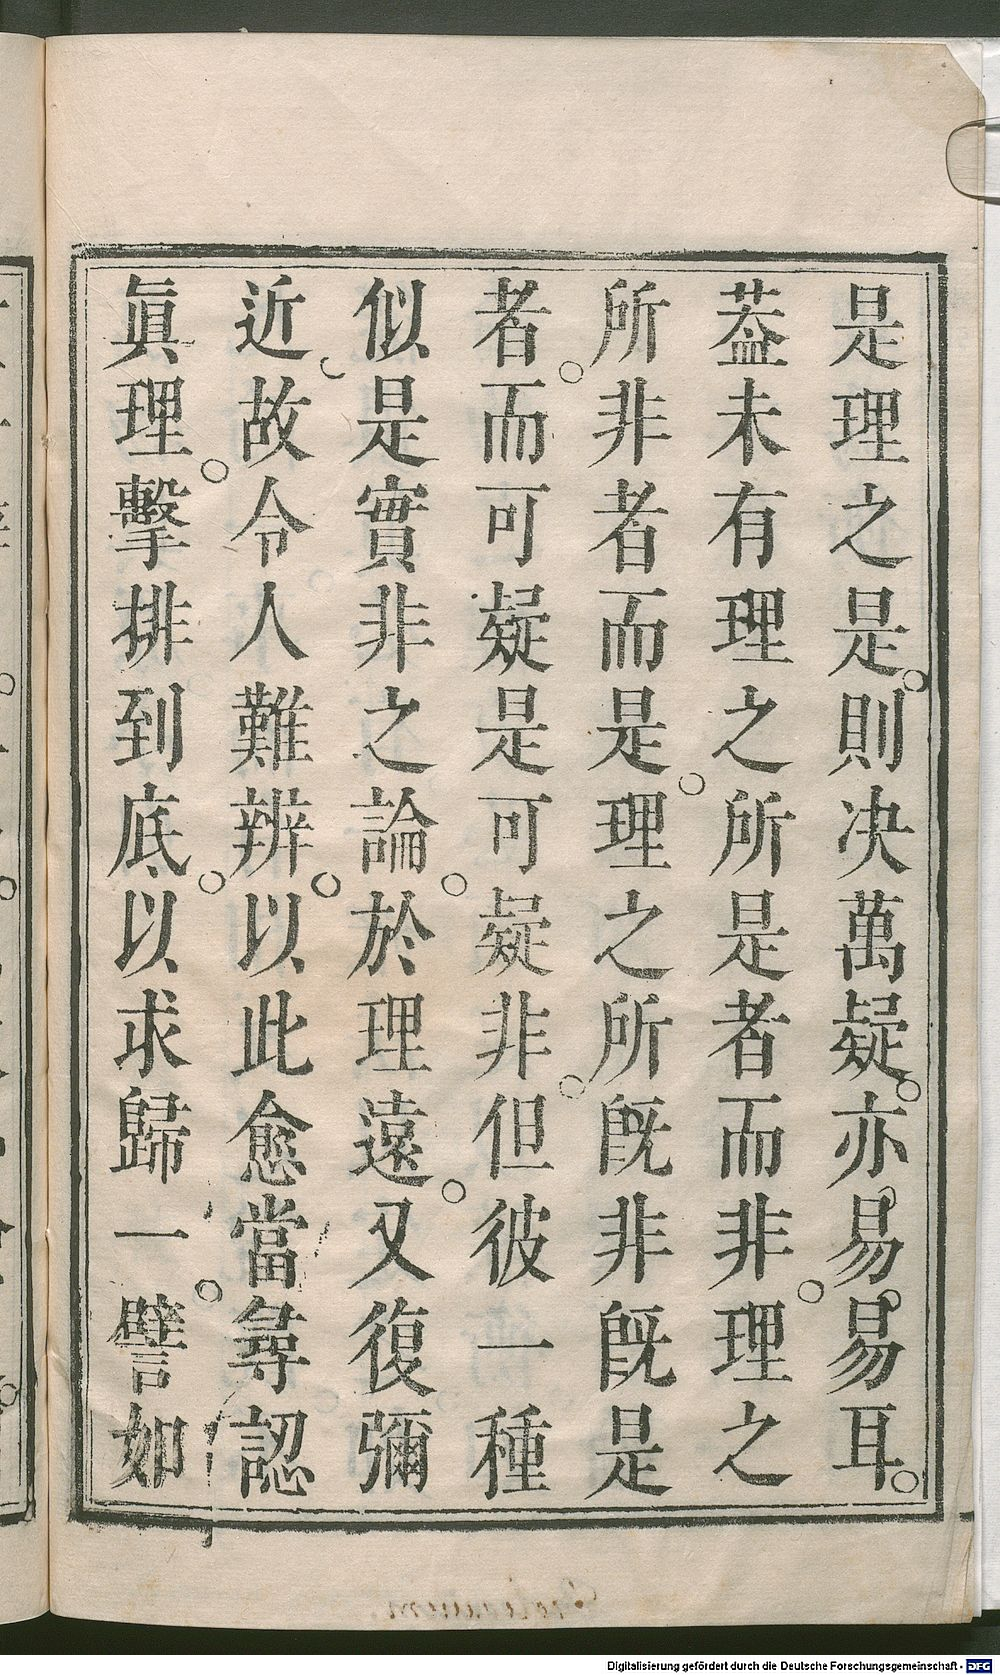 是理之是。則决萬疑。亦易。易耳。
葢未有理之所是者而非。理之
所非者而是。理之所旣非旣是
者。而可疑是可疑非。但彼一種
似是實非之論。於理遠。又復彌
近、故令人難辨。以此愈當尋認
眞理。擊排到底。以求歸一。譬如
Digitalisierung gefördert durch die Deutsche Forschungsgemeinschaft - DFG